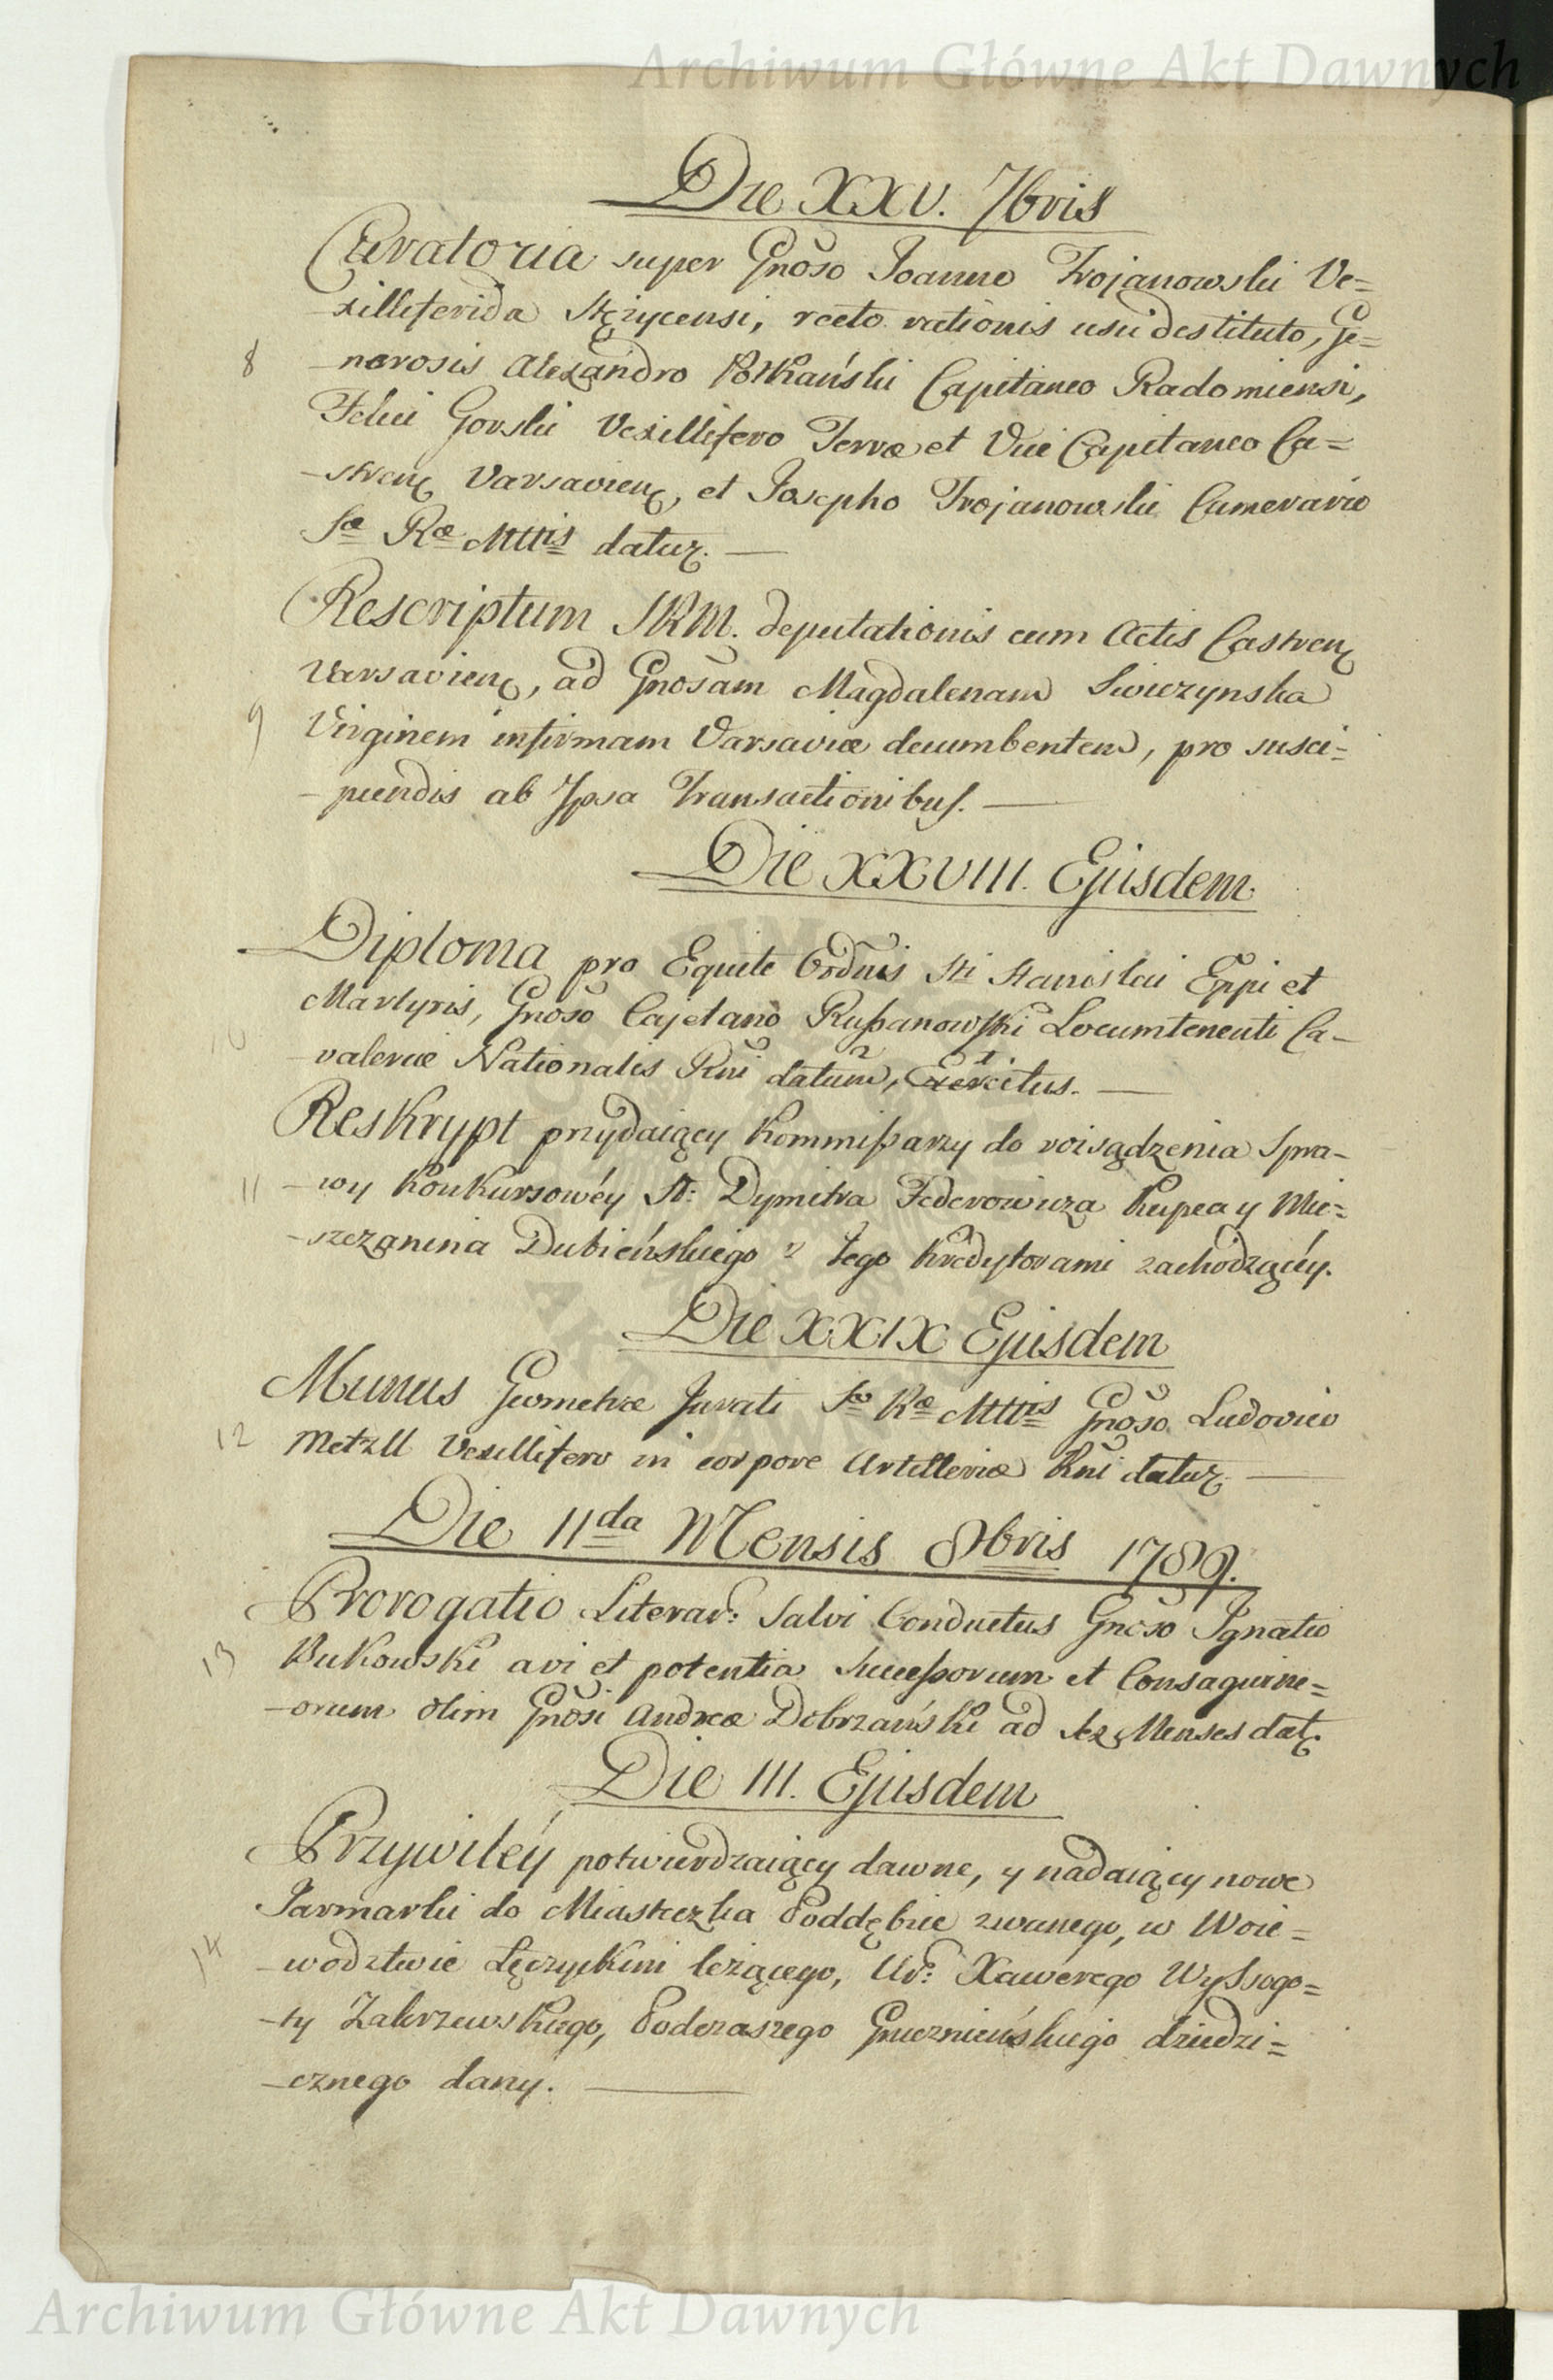 Archiwum Główne Akt Dawnych
Die XXV. 7bris
Curatoria super Gnoso Joanne Trojanowski Ve=
-xilliferida Stężycensi, recto rationis usu destituto, Ge=
8 -nerosis Alexandro Potkański Capitaneo Radomiensi,
Felici Gorski Vexillifero Terræ et Vice Capitaneo Ca=
-stren Varsavien, et Josepho Trojanowski Camerario
Sæ Ræ Mttis datur. —
Rescriptum SRM. deputationis cum Actis Castren
Varsavien, ad Gnosam Magdalenam Swiczynska
9 Virginem infirmam Varsaviæ decumbentem, pro susci=
-piendis ab Ipsa Transactionibus. —
Die XXVIII. Ejusdem
Diploma pro Equite Ordnis Sti Stanislai Eppi et
Martyris, Gnoso Cajetano Rußanowski Locumtenenti Ca-
10 valeriæ Nationalis Rni datum, Exercitus. —
Reskrypt przydaiący Kommißarzy do rozsądzenia Spra-
11 -wy Konkursowéy St: Dymitra Federowicza Kupca y Mie=
-szczanina Dubieńskiego z Jego Kredytorami zachodzącéy.
Die XXIX Ejusdem
Munus Geometræ Jurati Sæ Ræ Mttis Gnoso Ludovico
12 Metzll Vexillifero in corpore Artilleriæ Rni datur —
Die IIda Mensis 8bris 1789.
Prorogatio Literar: Salvi Conductus Gnoso Ignatio
13 Bukowski a vi et potentia Succeßorum et Consaguine=
-orum olim Gnosi Andreæ Dobrzański ad sex Menses dat
Die III. Ejusdem
Przywiléy potwierdzaiący dawne, y nadaiący nowe
Jarmarki do Miasteczka Poddębice zwanego, w Woie=
14 -wodztwie Łęczyckim leżącego, Ur: Xawerego Wyssogo=
-ty Zakrzewskiego, Podczaszego Gnieznieńskiego dziedzi=
-cznego dany. —
Archiwum Główne Akt Dawnych